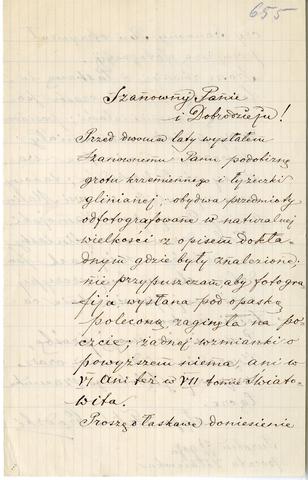 655
Szanowny Panie
i Dobrodzieju!
Przed dwoma laty wysłałem
Szanownemu Panu podobiznę
grotu krzemiennego i łyżeczki
glinianej; obydwa przedmioty
odfotografowane w naturalnej
wielkości z opisem dokła-
dnym gdzie były znalezione;
nie przypuszczam, aby fotogra
fija wysłana pod opaską
poleconą zaginęła na po-
czcie; żadnej wzmianki o
powyższem niema, ani w
VI ani też w VII tomie Świato-
wita.
Proszę o łaskawe doniesienie